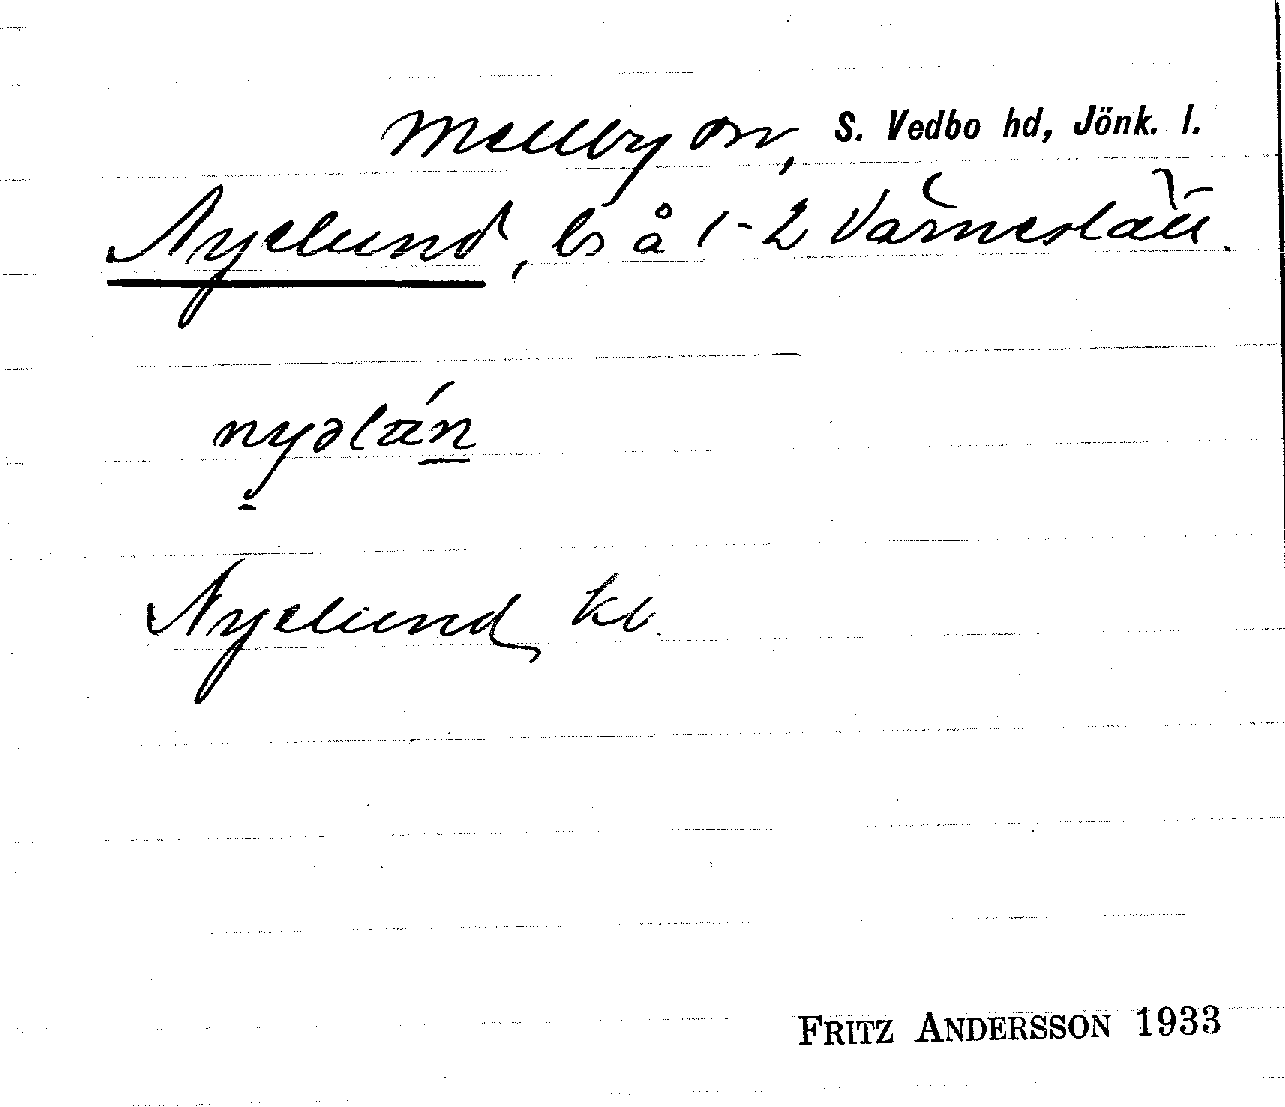 Mellby sn, S. Vedbo hd, Jönk. l.
Nyelund, ls å 1-2 Värneslätt.
nyəlún
Nyelund kb.
FRITZ ANDERSSON 1933